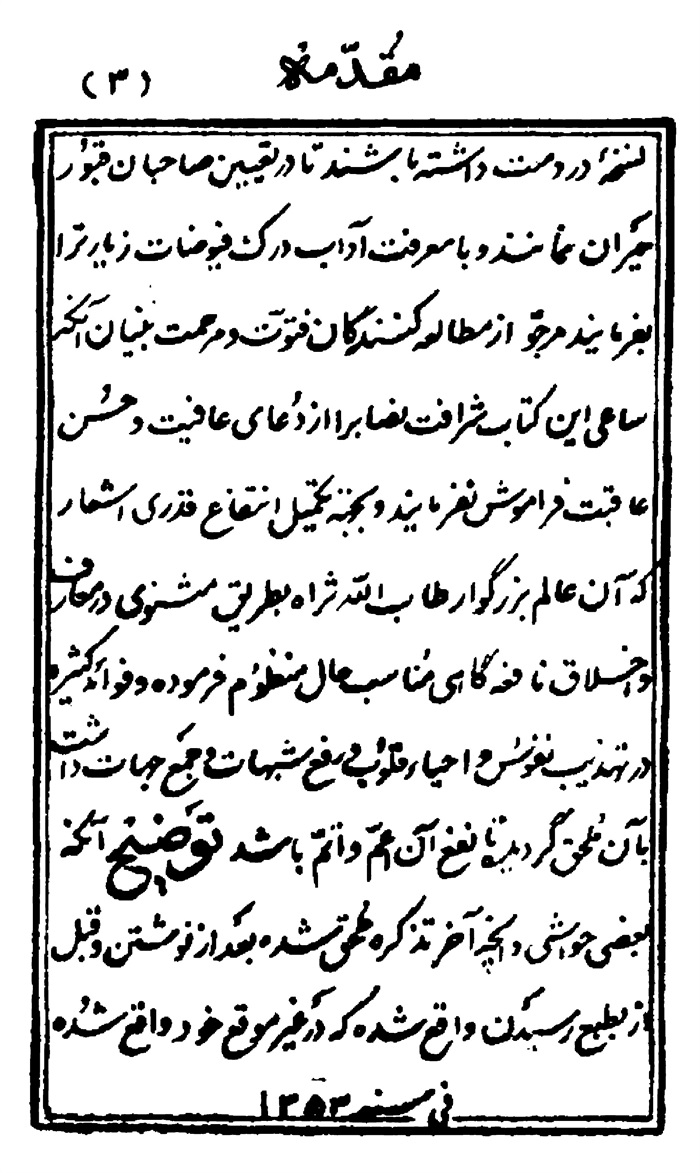 مقدمه (۳)
نسخهٔ در دست داشته باشند تا در تعیین صاحبان قبور
حیران نمانند و با معرفت آداب درک فیوضات زیارترا
بفرمایند مرجوّ از مطالعه کنندگان فتوّت و مرحمت بنیان آنکه
ساعی این کتاب شرافت نصابرا از دُعای عافیت و حُسن
عاقبت فراموش نفرمایند و بجهة تکمیل انتفاع قدری اشعار
که آن عالم بزرگوار طاب الله ثراه بطریق مثنوی در معارف
و اخلاق نافعه گاهی مُناسب حال منظوم فرموده و فوائد کثیره
در تهذیب نفوس و احیاء قلوب و رفع شبهات و جمع جهات داشت
بآن مُلحق گردید تا نفع آن اعمّ و اتمّ باشد توضیح آنکه
بعضی حواشی و آنچه آخر تذکره ملحق شده بعد از نوشتن و قبل
از بطبع رسیدن واقع شده که در غیر موقع خود واقع شده
فی سنه ۱۳۵۳